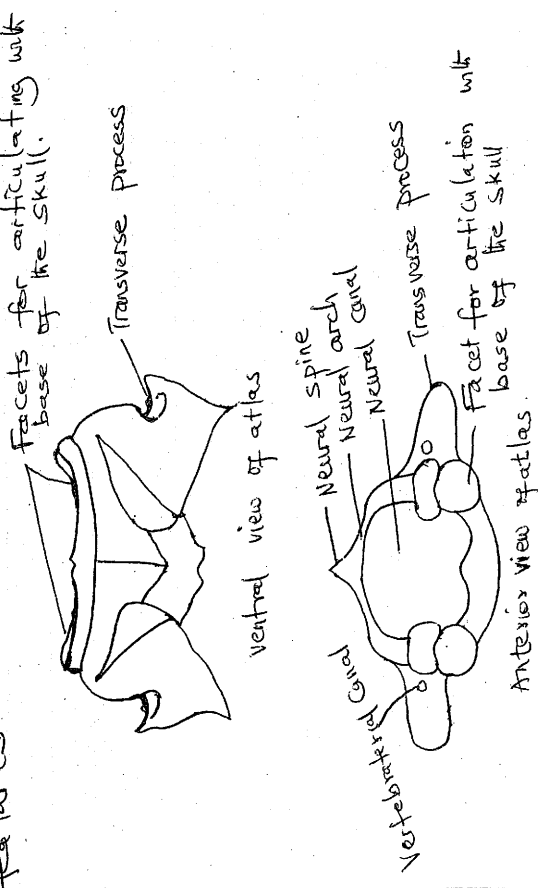 Facets for articulating with
base of the skull.
Transverse process
ventral view of atlas
Neural spine
Neural arch
Neural Canal
Transverse process
Facet for articulation with
base of the skull
Vertebraterial Canal
Anterior view of atlas.